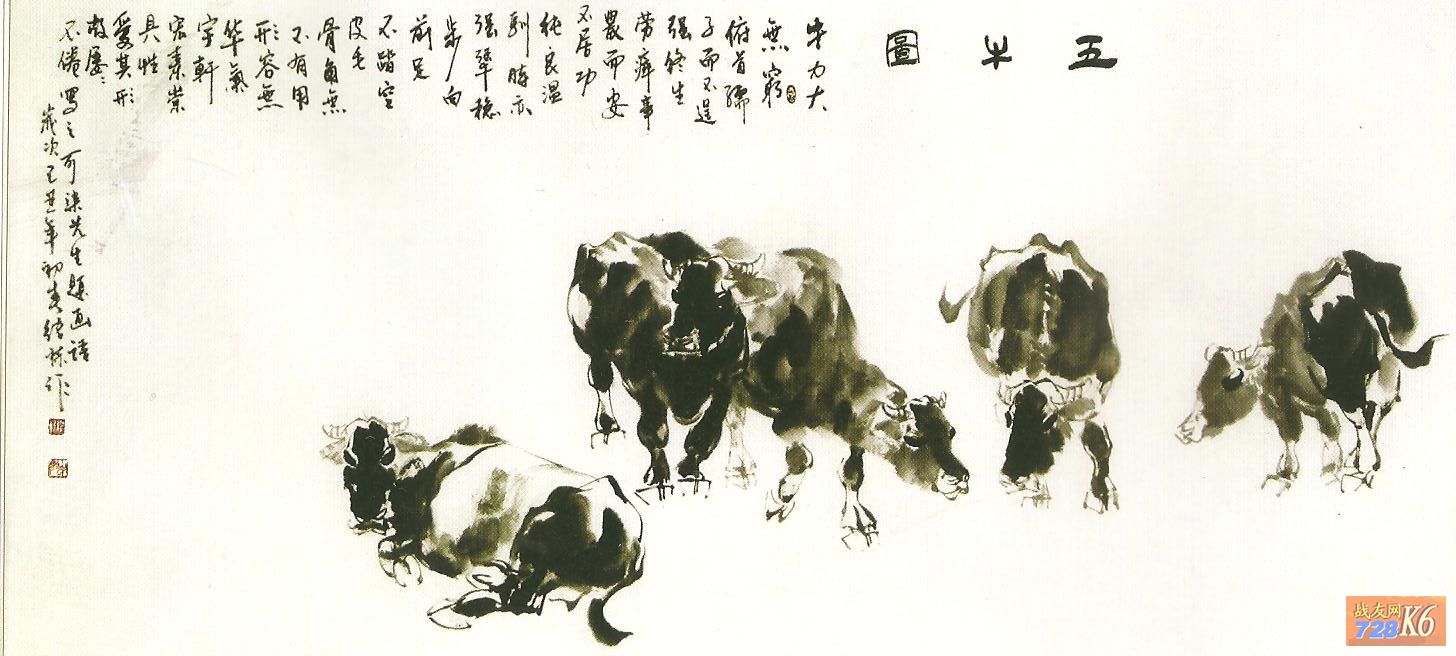 五牛圖
牛力大
無窮
俯首孺
子而不逞
强終生
劳瘁事
農而安
不居功
純良温
馴時亦
强犟稳
步向
前足
不踏空
皮毛
骨角無
不有用
形容無
华氣
宇軒
宏素崇
其性
爱其形
故屡々
不倦写之可染先生題画語
岁次己丑年初春作
战友网
728K6